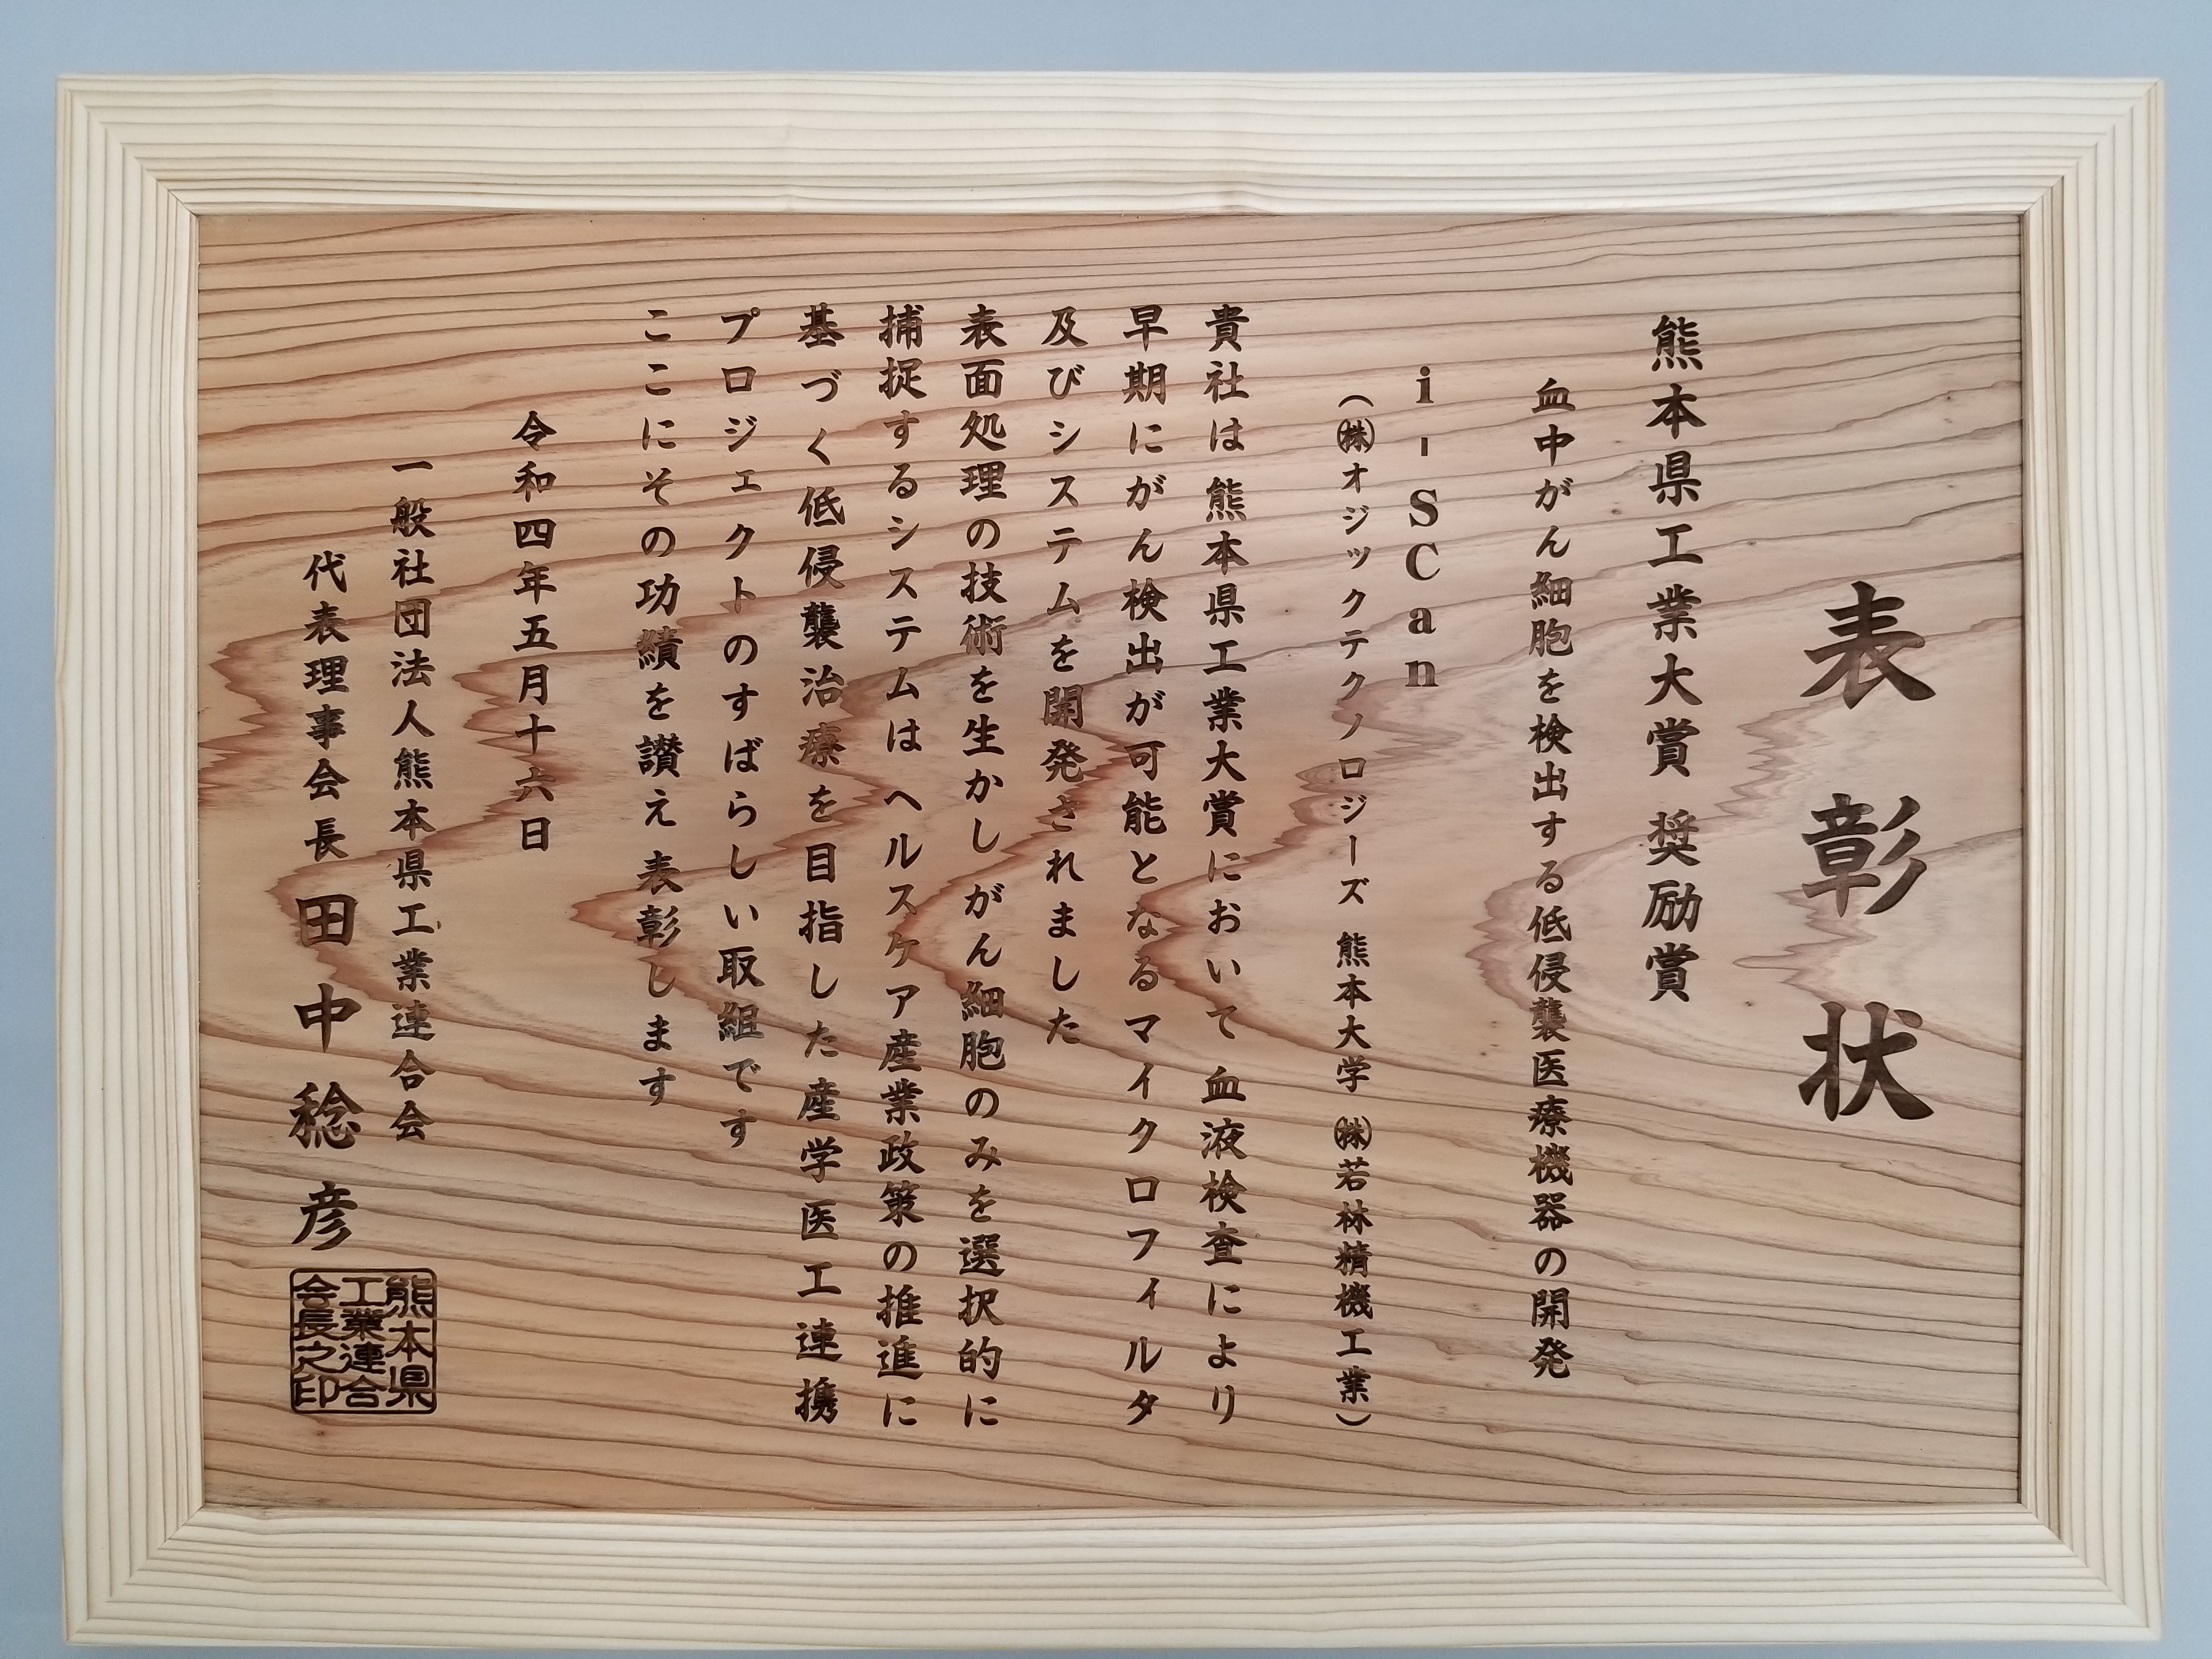 表彰状
熊本県工業大賞 奨励賞
血中がん細胞を検出する低侵襲医療機器の開発
i-SCan
(㈱オジックテクノロジーズ 熊本大学 ㈱若林精機工業)
貴社は熊本県工業大賞において 血液検査により
早期にがん検出が可能となるマイクロフィルタ
及びシステムを開発されました
表面処理の技術を生かしがん細胞のみを選択的に
捕捉するシステムは ヘルスケア産業政策の推進に
基づく低侵襲治療を目指した産学医工連携
プロジェクトのすばらしい取組です
ここにその功績を讃え 表彰します
令和四年五月十六日
一般社団法人熊本県工業連合会
代表理事会長 田中稔彦
熊本県
工業連合
会長之印